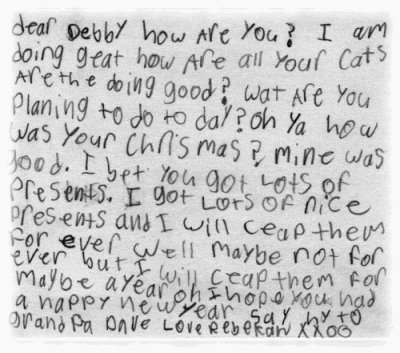 dear Debby how are you? I am
doing geat how are all your cats
are the doing good? wat are you
planing to do to day? oh ya how
was your chrismas? mine was
good. I bet you got lots of
presents. I got lots of nice
presents and I will ceap them
for ever well maybe not for
ever but I will ceap them for
maybe a year oh I hope you had
a happy new year say hy to
grandpa Dave Love Rebekah XXOO